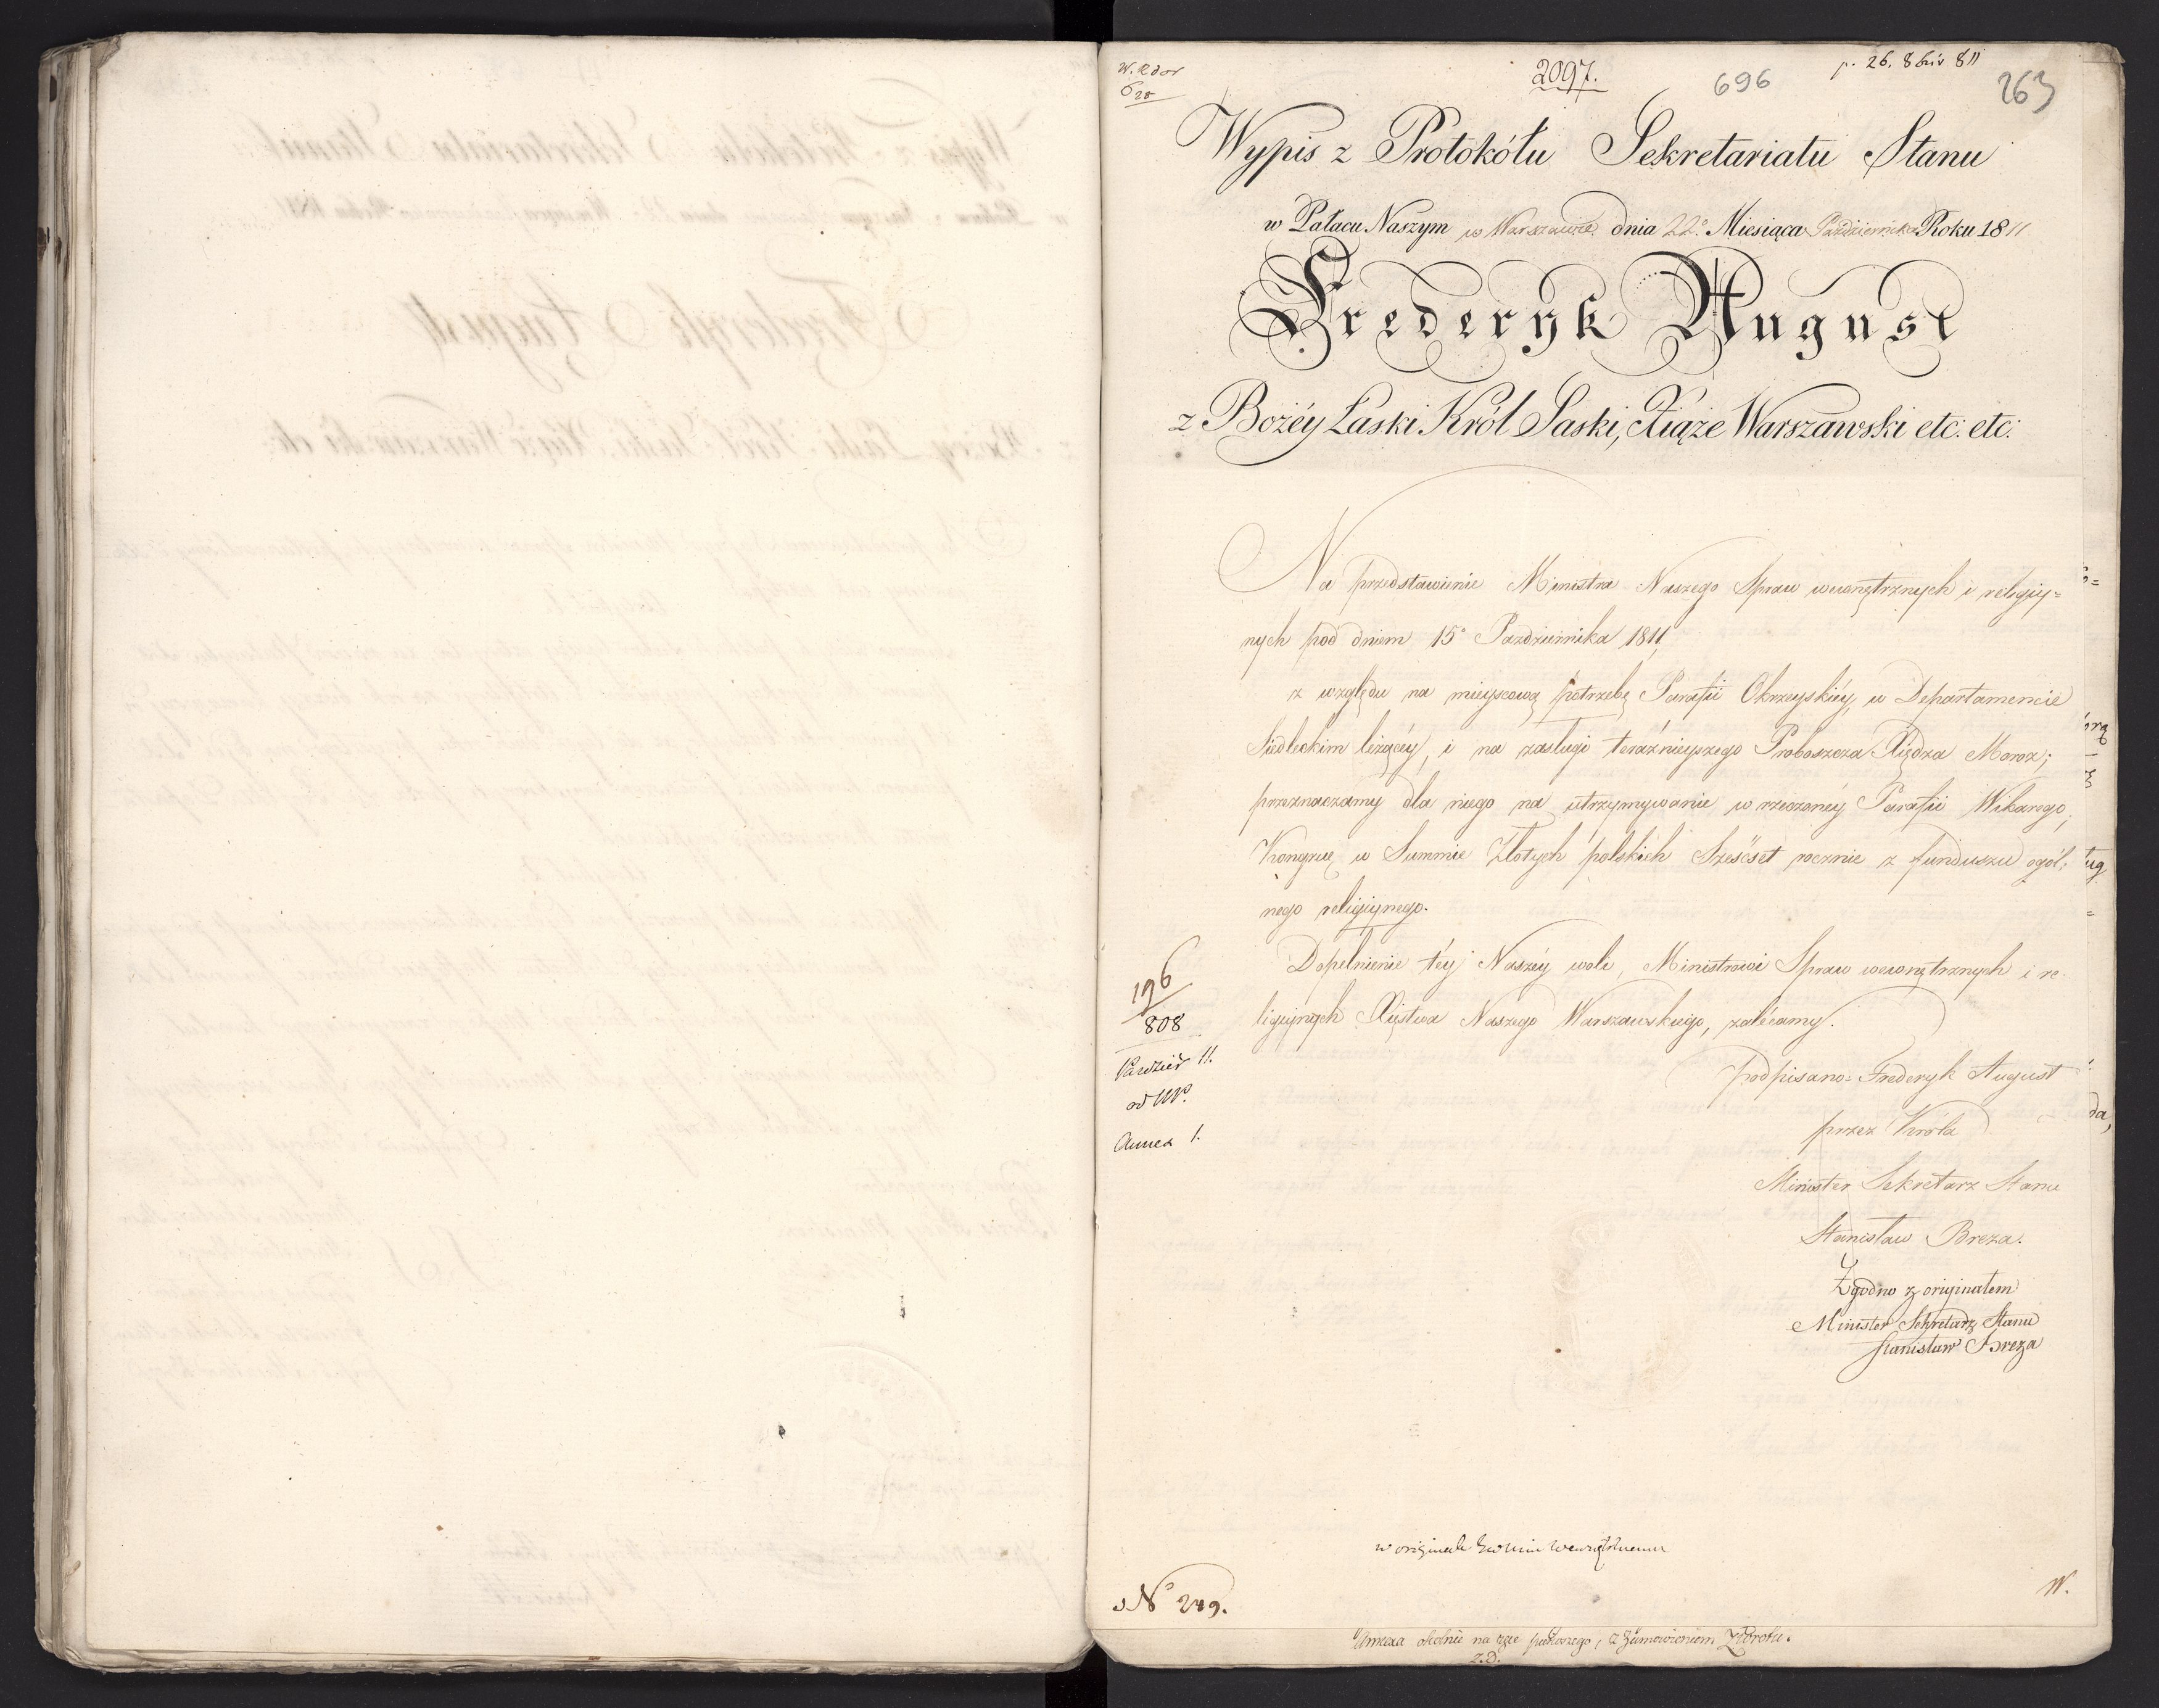 2097.
696
p. 26. 8bris 811
263
Wypis z Protokółu Sekretariatu Stanu
w Pałacu Naszym w Warszawie dnia 22° Miesiąca Października Roku 1811
Frederyk August
z Bożéy Łaski Król Saski, Xiąże Warszawski etc: etc:
Na przedstawienie Ministra Naszego Spraw wewnętrznych i religiy=
nych pod dniem 15° Października 1811,
z względu na mieyscową potrzebę Parafii Okrzeyskiéy, w Departamencie
Siedleckim leżącéy, i na zasługi teraźnieyszego Proboszcza Xiędza Moroz;
przeznaczamy dla niego na utrzymywanie w rzeczonéy Parafii Wikarego,
Kongruę w Summie Złotych polskich Sześćset rocznie z funduszu ogól=
nego religiynego.
Dopełnienie téy Naszéy woli, Ministrowi Spraw wewnętrznych i re=
ligiynych Xięstwa Naszego Warszawskiego, zalécamy.
196
808
Paździer 11.
Annex 1.
podpisano= Frederyk August
przez Króla
Minister Sekretarz Stanu
Stanisław Breza.
Zgodno z originałem
Minister Sekretarz Stanu
Stanisław Breza
w originale
N° 249.
W.